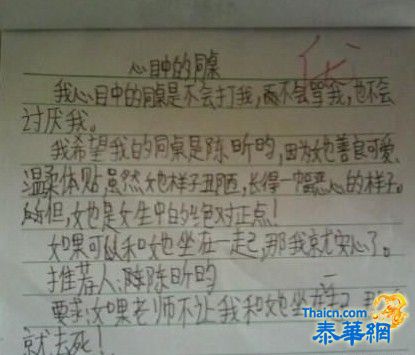 心目中的同桌
优
我心目中的同桌是不会打我,而不会骂我,也不会
讨厌我。
我希望我的同桌是陈昕昀,因为她善良可爱、
温柔体贴,虽然她样子丑陋,长得一幅恶心的样子。
但,她也是女生中的绝对正点!
如果可以和她坐在一起,那我就安心了。
推荐人:陈昕昀
要求:如果老师不让我和她坐在一起
就去死!
Thaicn.com
泰華網